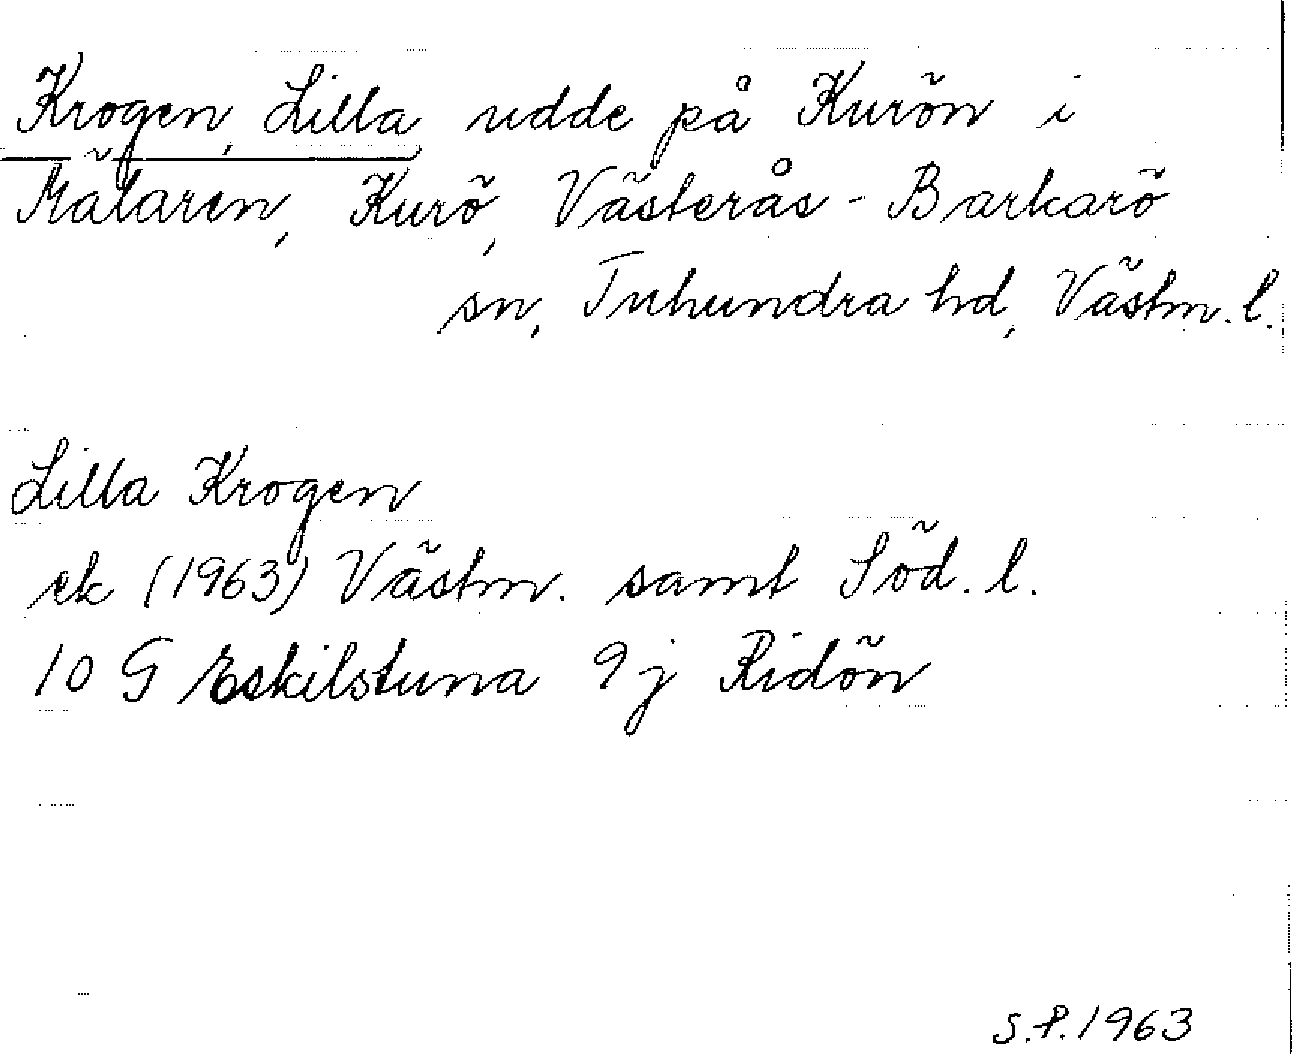 Krogen, Lilla udde på Kurön i
Mälaren, Kurö, Västerås-Barkarö
sn, Tuhundra hd, Västm. l.
Lilla Krogen
ek (1963) Västm. samt Söd. l.
10 G Eskilstuna 9j Ridön
S.P. 1963